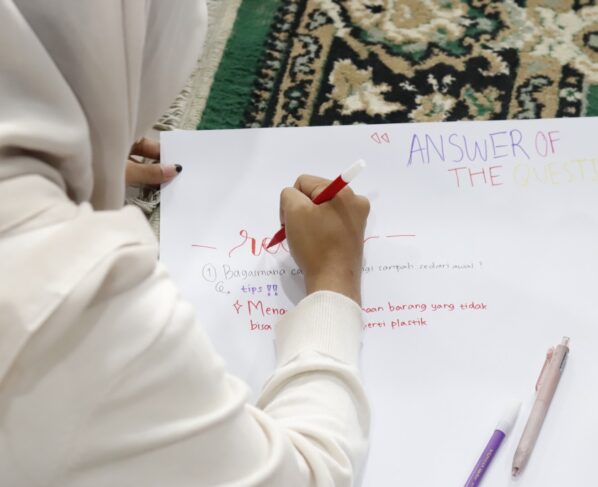 ANSWER OF
THE QUESTI
re
1 Bagaimana ca gi sampah sedari awal ?
tips !!
Mena aan barang yang tidak
bisa erti plastik